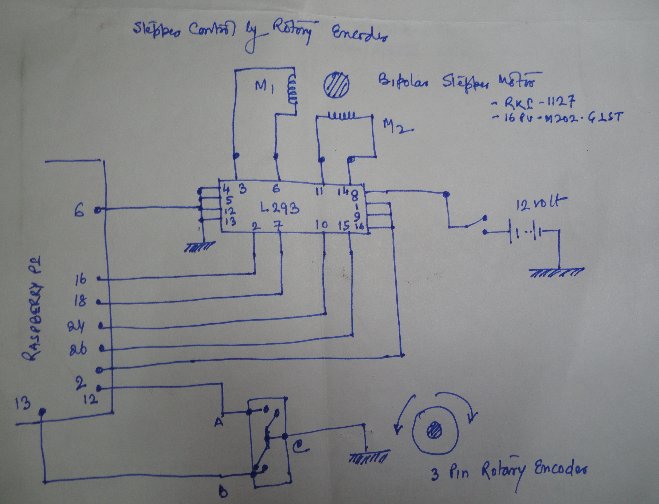 Stepper Control by Rotary Encoder
M1
Bipolar Stepper Motor
- 16PU-M202-G1ST
M2
4 3 6 11 14 8
5 1
12 L293 9
13 2 7 10 15 16
6
12 volt
RASPBERRY PI
16
18
24
26
2
12
13
A
B
C
3 Pin Rotary Encoder